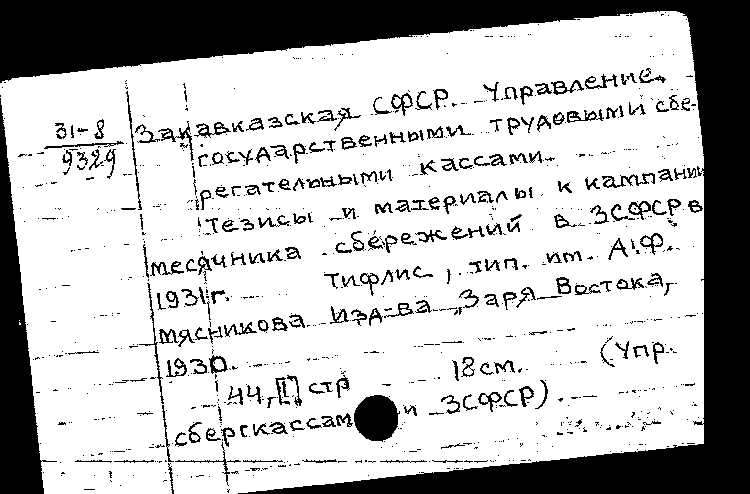 31-8
9329
Закавказская СФСР. Управление
государственными трудовыми сбе-
регательными кассами.
Тезисы и материалы к кампании
месячника сбережений в ЗСФСР в
1931 г. Тифлис, тип. им. А.Ф.
Мясникова Изд-ва „Заря Востока,
1930.
44, [1] стр 18 см. (Упр.
сберкассами ЗСФСР).